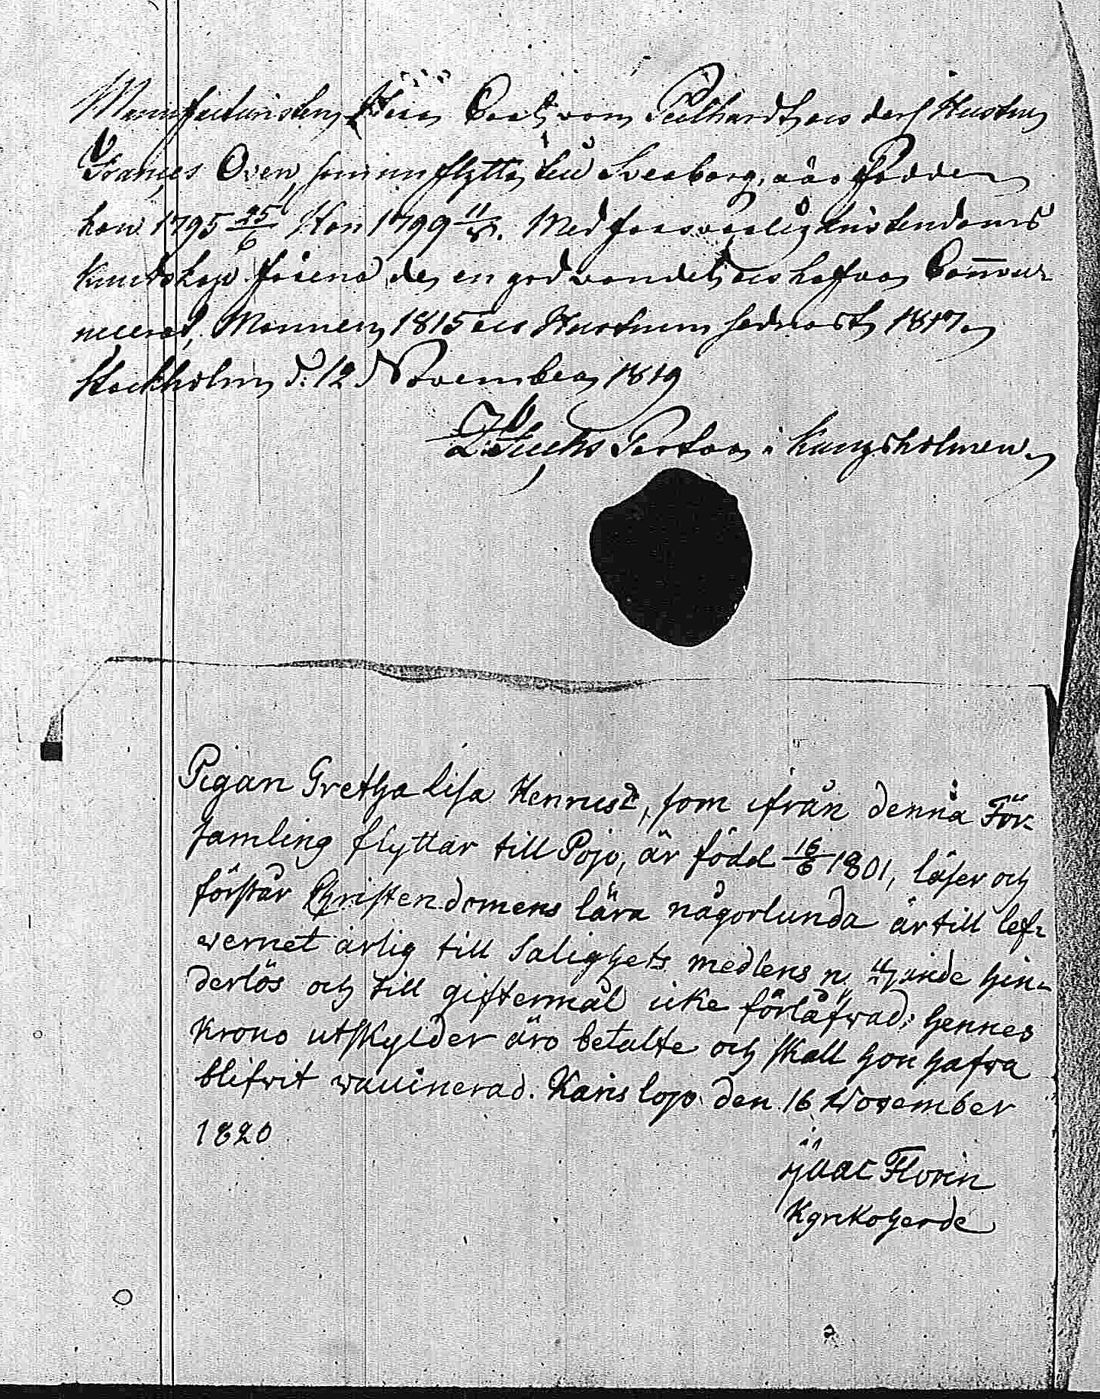 Manufacturisten Herr Carl von Peilhardt och dess Hustru
Oven, som nu flytta till Sveaborg, äro födde
han 1795 25/6 Hon 1799. Med försvarlig christendoms
kundskap förena de en god vandel och hafva Commu-
nicerat, Mannen 1815 och Hustrun sednast 1817
Stockholm d. 12 November 1819
Pastor i Kungsholmen
Pigan Gretha Lisa Henricsd, som ifrån denna För-
samling flyttar till Pojo, är född 16/6 1801, läser och
förstår Christendomens lära någorlunda är till lef-
vernet ärlig till Salighets medlens njutande hin-
derlös och till giftermål icke förlåfvad; hennes
Krono utskylder äro betalte och skall hon hafva
blifvit vaccinerad. Karislojo den 16 November
1820
Isaac Florin
Kyrkoherde